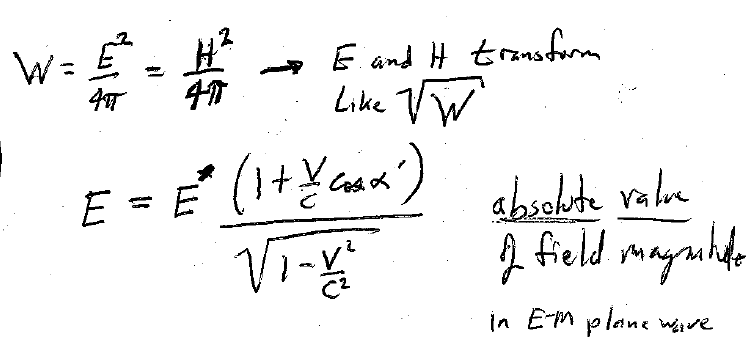 W = E²/4π = H²/4π → E and H transform
Like √W
E = E* (1 + V/C cos α') / √(1 - V²/C²)
absolute value
of field magnitude
in E-M plane wave